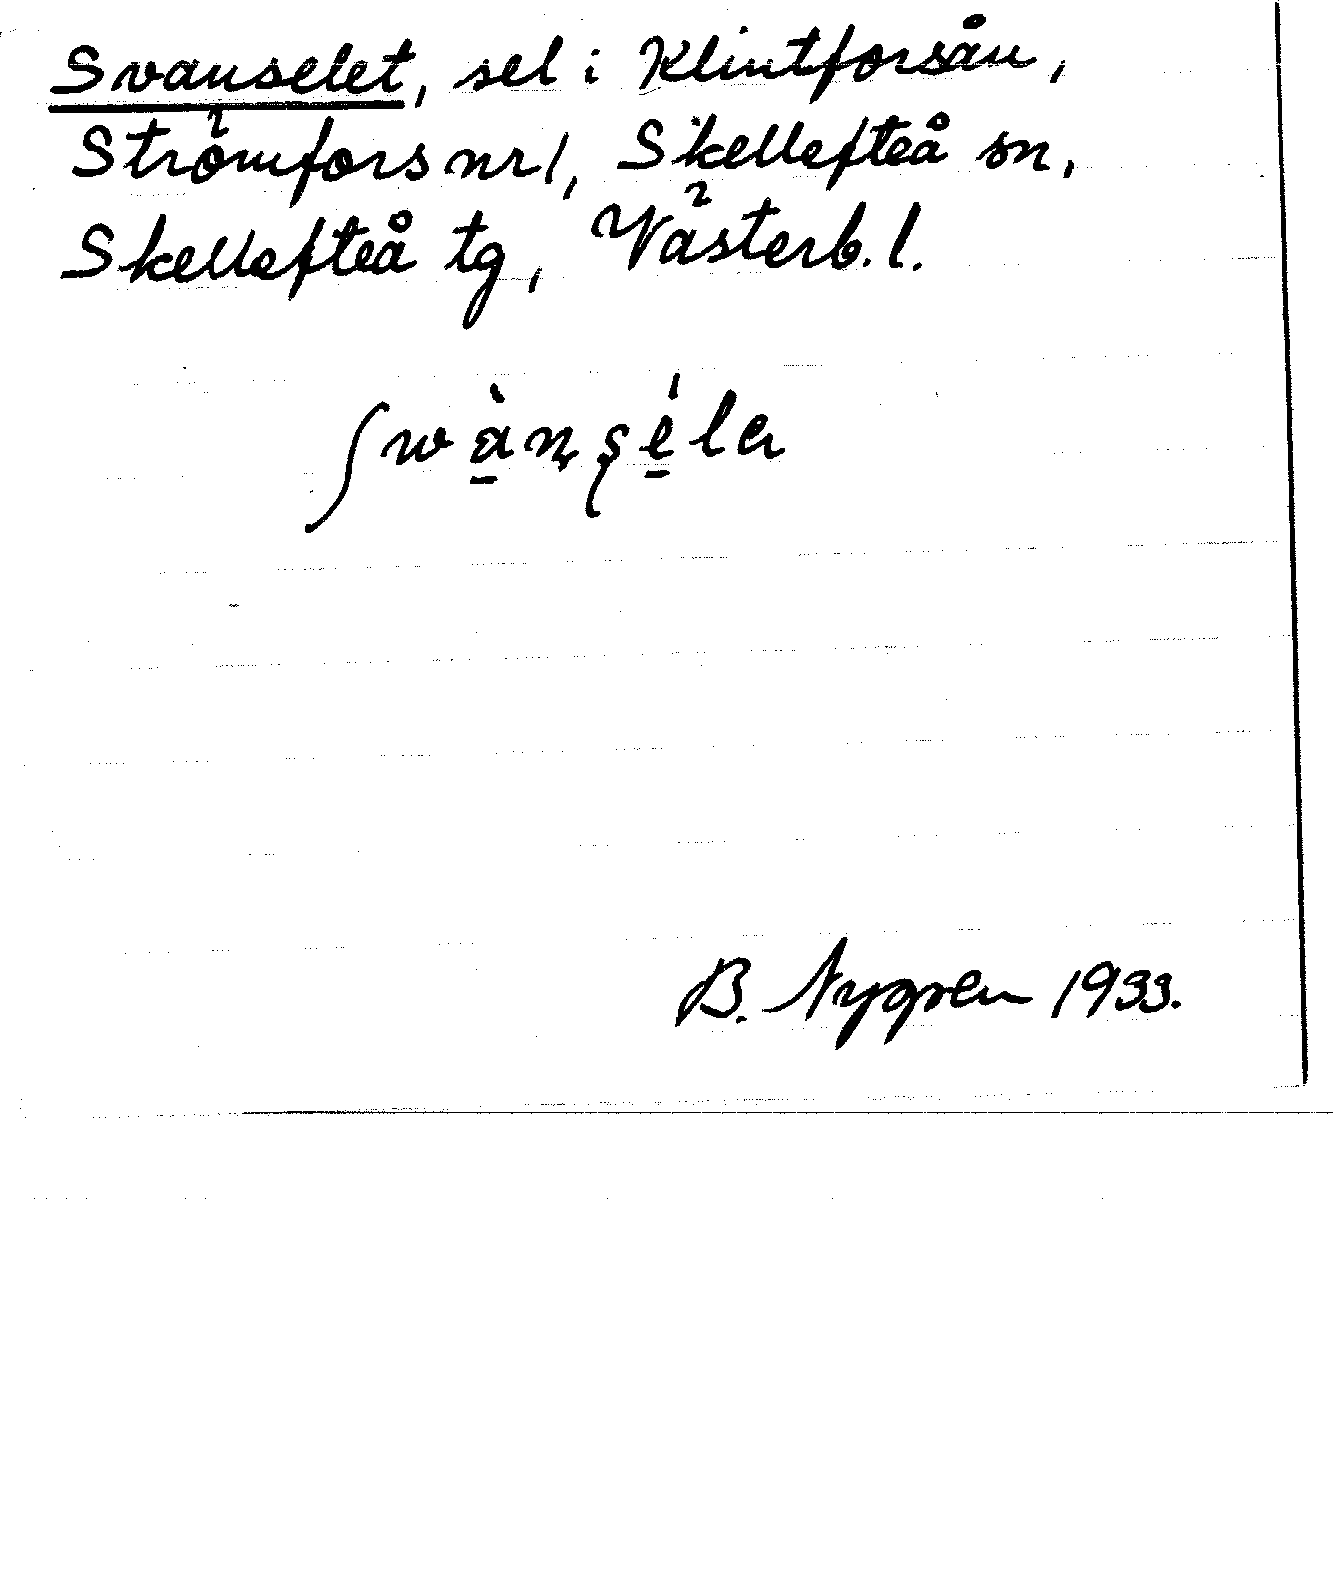 Svanselet, sel i Klintforsån,
Strömfors nr 1, Skellefteå sn,
Skellefteå tg, Västerb. l.
ʃwà̱ṇʂé̱la
B. Nygren 1933.